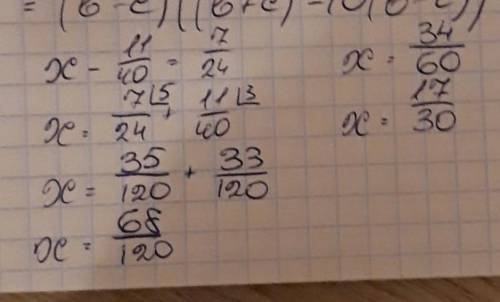 = (b - c)((b+c) - 10(b - c))
x - 11/40 = 7/24
x = 7⌊5/24 + 11⌊3/40
x = 35/120 + 33/120
x = 68/120
x = 34/60
x = 17/30